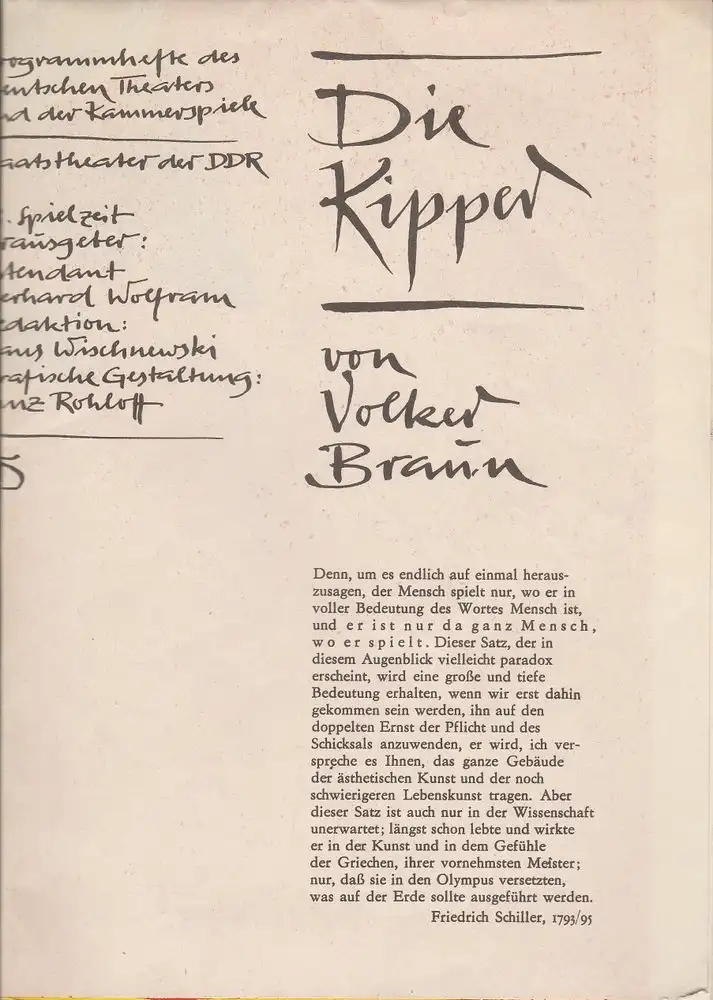 ogrammhefte des
eutschen Theaters
nd der Kammerspiele
aatstheater der DDR
. Spielzeit
rausgeber:
tendant
erhard Wolfram
daktion:
aus Wischnewski
rafische Gestaltung:
inz Rohloff
5
Die
Kipper
von
Volker
Braun
Denn, um es endlich auf einmal heraus-
zusagen, der Mensch spielt nur, wo er in
voller Bedeutung des Wortes Mensch ist,
und er ist nur da ganz Mensch,
wo er spielt. Dieser Satz, der in
diesem Augenblick vielleicht paradox
erscheint, wird eine große und tiefe
Bedeutung erhalten, wenn wir erst dahin
gekommen sein werden, ihn auf den
doppelten Ernst der Pflicht und des
Schicksals anzuwenden, er wird, ich ver-
spreche es Ihnen, das ganze Gebäude
der ästhetischen Kunst und der noch
schwierigeren Lebenskunst tragen. Aber
dieser Satz ist auch nur in der Wissenschaft
unerwartet; längst schon lebte und wirkte
er in der Kunst und in dem Gefühle
der Griechen, ihrer vornehmsten Meister;
nur, daß sie in den Olympus versetzten,
was auf der Erde sollte ausgeführt werden.
Friedrich Schiller, 1793/95